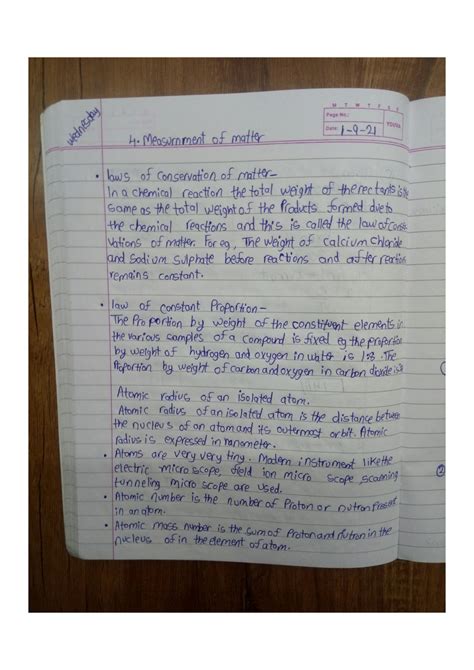 Wednesday
M T W T F S S
Page No.:
Date: 1-9-21
YOUVA
4. Measurnment of matter
• laws of Conservation of matter-
In a chemical reaction the total weight of the rectants is the
same as the total weight of the Products formed due to
the chemical reactions and this is called the law of conser
vations of matter. For eg, The weight of calcium chloride
and Sodium Sulphate before reactions and after reaction
remains constant.
• law of constant Proportion-
The Proportion by weight of the constituent elements in
the various samples of a compound is fixed eg the proportion
by weight of hydrogen and oxygen in water is 1:8. The
Poportion by weight of carbon and oxygen in carbon dioxide is
Atomic radius of an isolated atom.
Atomic radius of an isolated atom is the distance between
the nucleus of an atom and its outermost orbit. Atomic
radius is expressed in nanometer.
• Atoms are very very tiny. Modern instrument like the
electric microscope, field ion micro scope, scanning
tunneling micro scope are used.
• Atomic number is the number of Proton or nutron Present
in an atom.
• Atomic mass number is the sum of Proton and nutron in the
nucleus of in the element of atom.